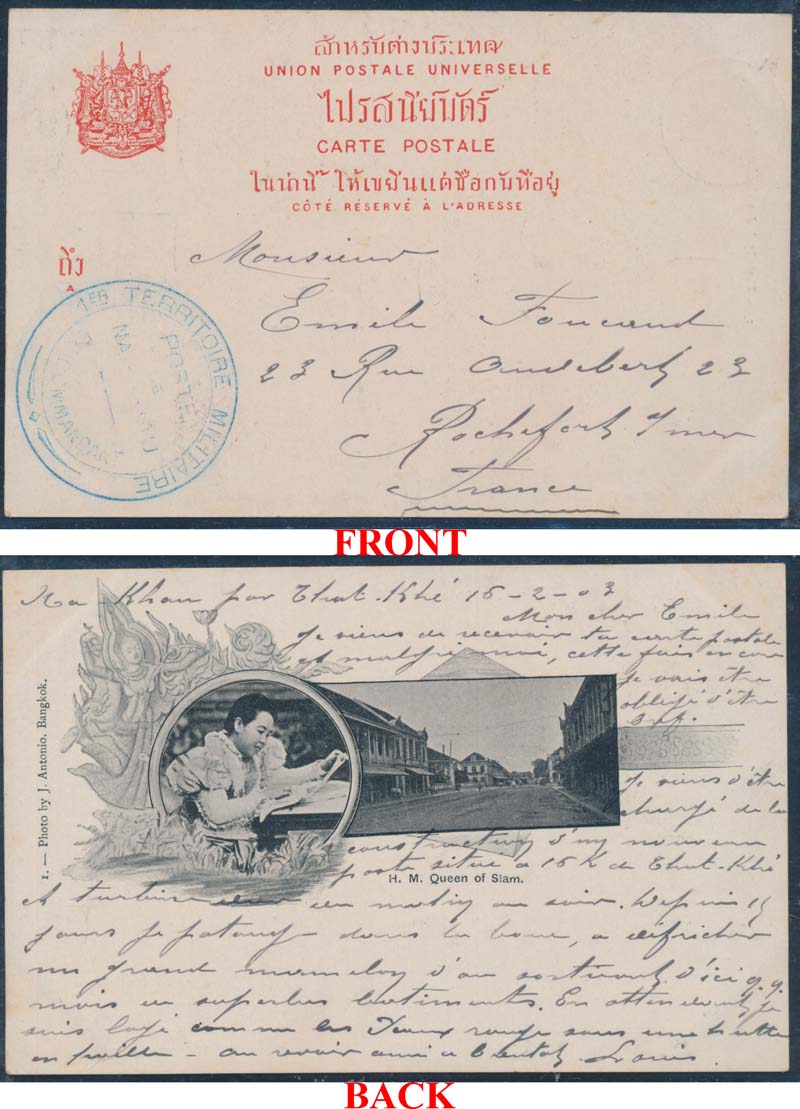 สำหรับต่างประเทศ
UNION POSTALE UNIVERSELLE
ไปรสนียบัตร์
CARTE POSTALE
ในน่านี้ ให้เขียนแต่ชื่อกับที่อยู่
CÔTÉ RÉSERVÉ À L'ADRESSE
ถึง
A
Monsieur
Emile Foucaud
23 Rue Audebert 23
Rochefort s/mer
France
1ER TERRITOIRE MILITAIRE
POSTE
NA
COMMANDANT
FRONT
Na Khau par That-Khé 15-2-03
Mon cher Emile
Je viens de recevoir ta carte postale
et malgré moi, cette fois encore
je vais être
obligé d'être
bref.
Je viens d'être
chargé de la
construction d'un nouveau
poste situé à 15 K de That-Khé
du matin au soir. Depuis 15
jours je patauge dans la boue, a défricher
un grand mamelon d'où sortiront d'ici q.q.
mois de superbes batiments. En attendant je
suis logé comme les Peaux rouge sous une hutte
en paille - au revoir ami a bientot Louis
1. — Photo by J. Antonio. Bangkok.
H. M. Queen of Siam.
BACK